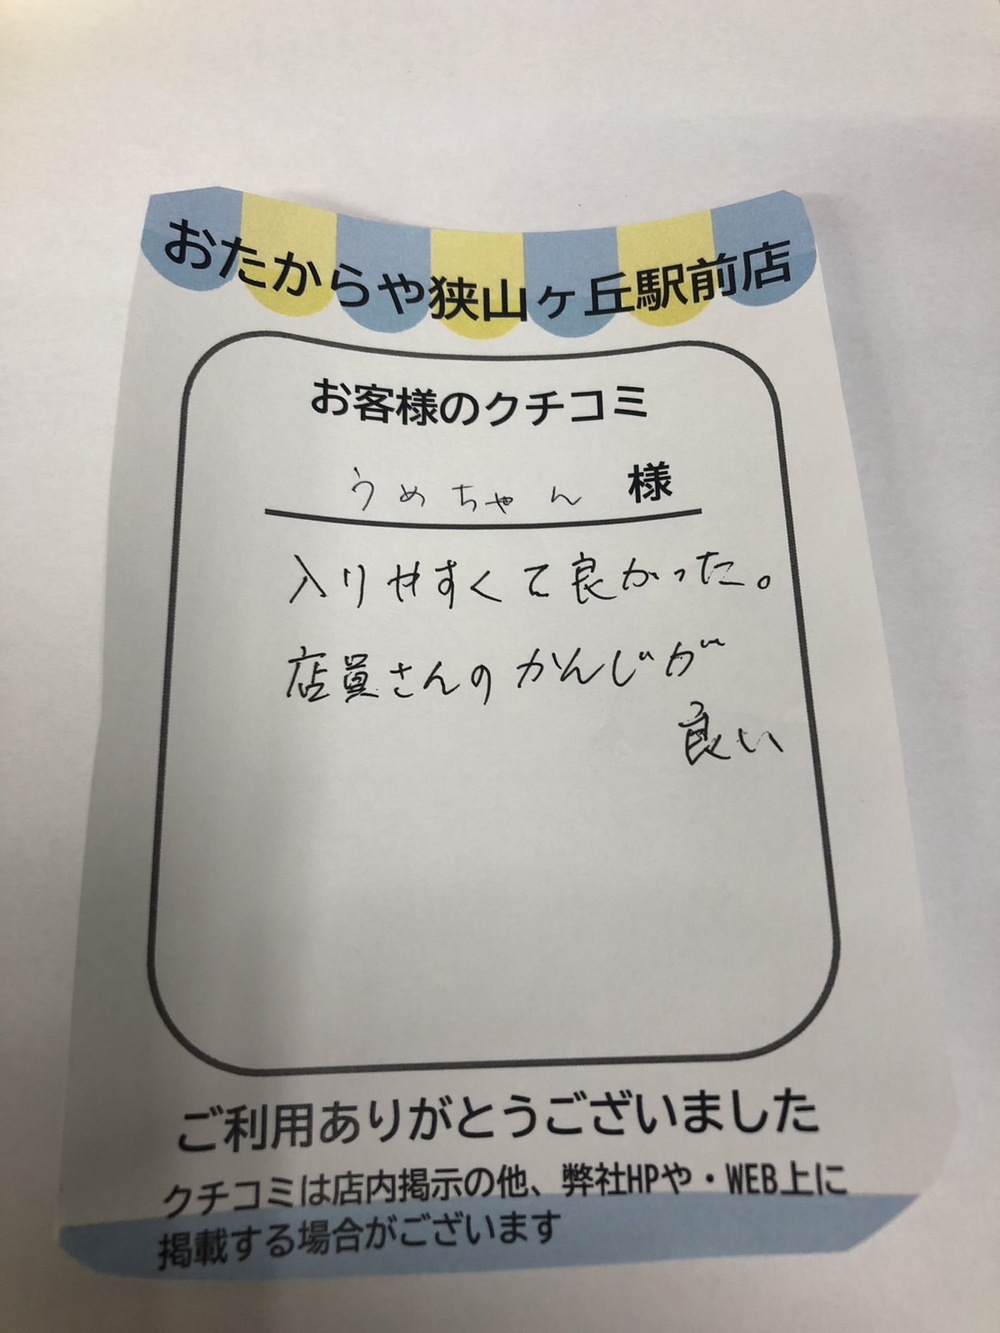 おたからや狭山ヶ丘駅前店
お客様のクチコミ
うめちゃん 様
入りやすくて良かった。
店員さんのかんじが
良い
ご利用ありがとうございました
クチコミは店内掲示の他、弊社HPや・WEB上に
掲載する場合がございます